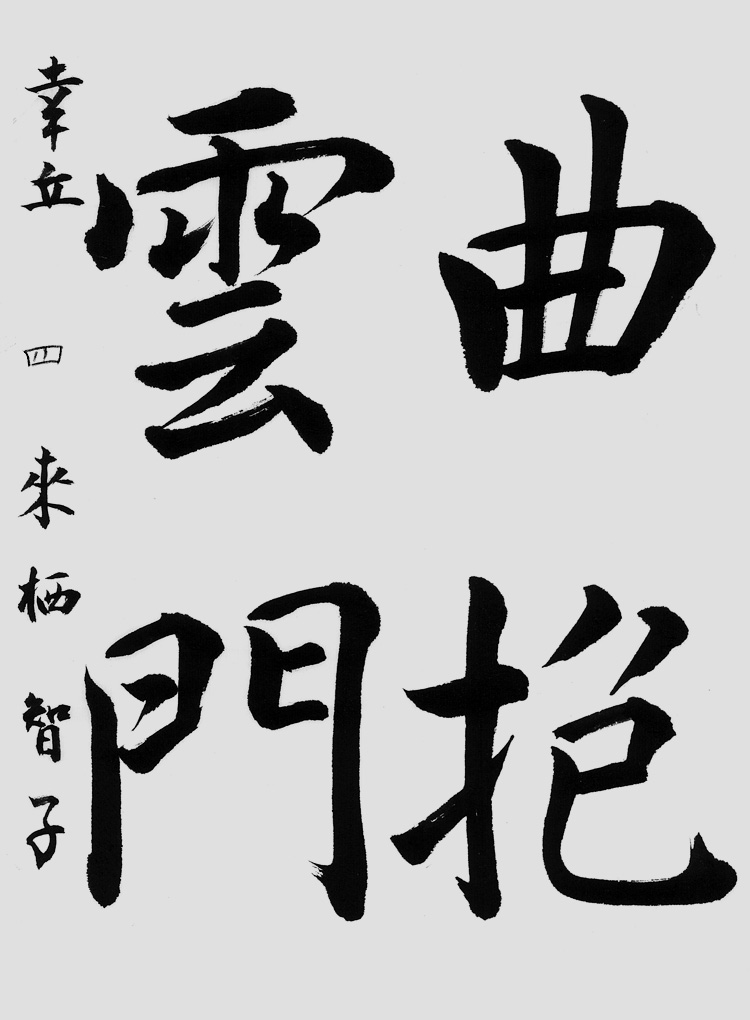 曲抱
雲門
幸丘 四 来栖智子